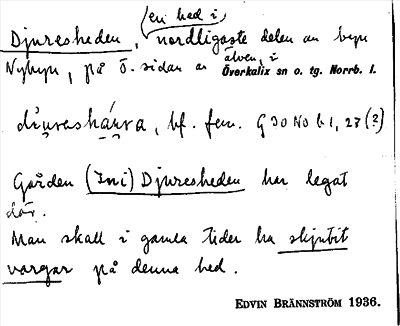 (en hed i)
Djuresheden, nordligaste delen av byn
Nybyn, på ö. sidan av älven, i
Överkalix sn o. tg. Norrb. l.
bf. fem. G 30 No b 1, 27 (?)
Gården (Ini) Djuresheden har legat
där.
Man skall i gamla tider ha skjutit
vargar på denna hed.
EDVIN BRÄNNSTRÖM 1936.